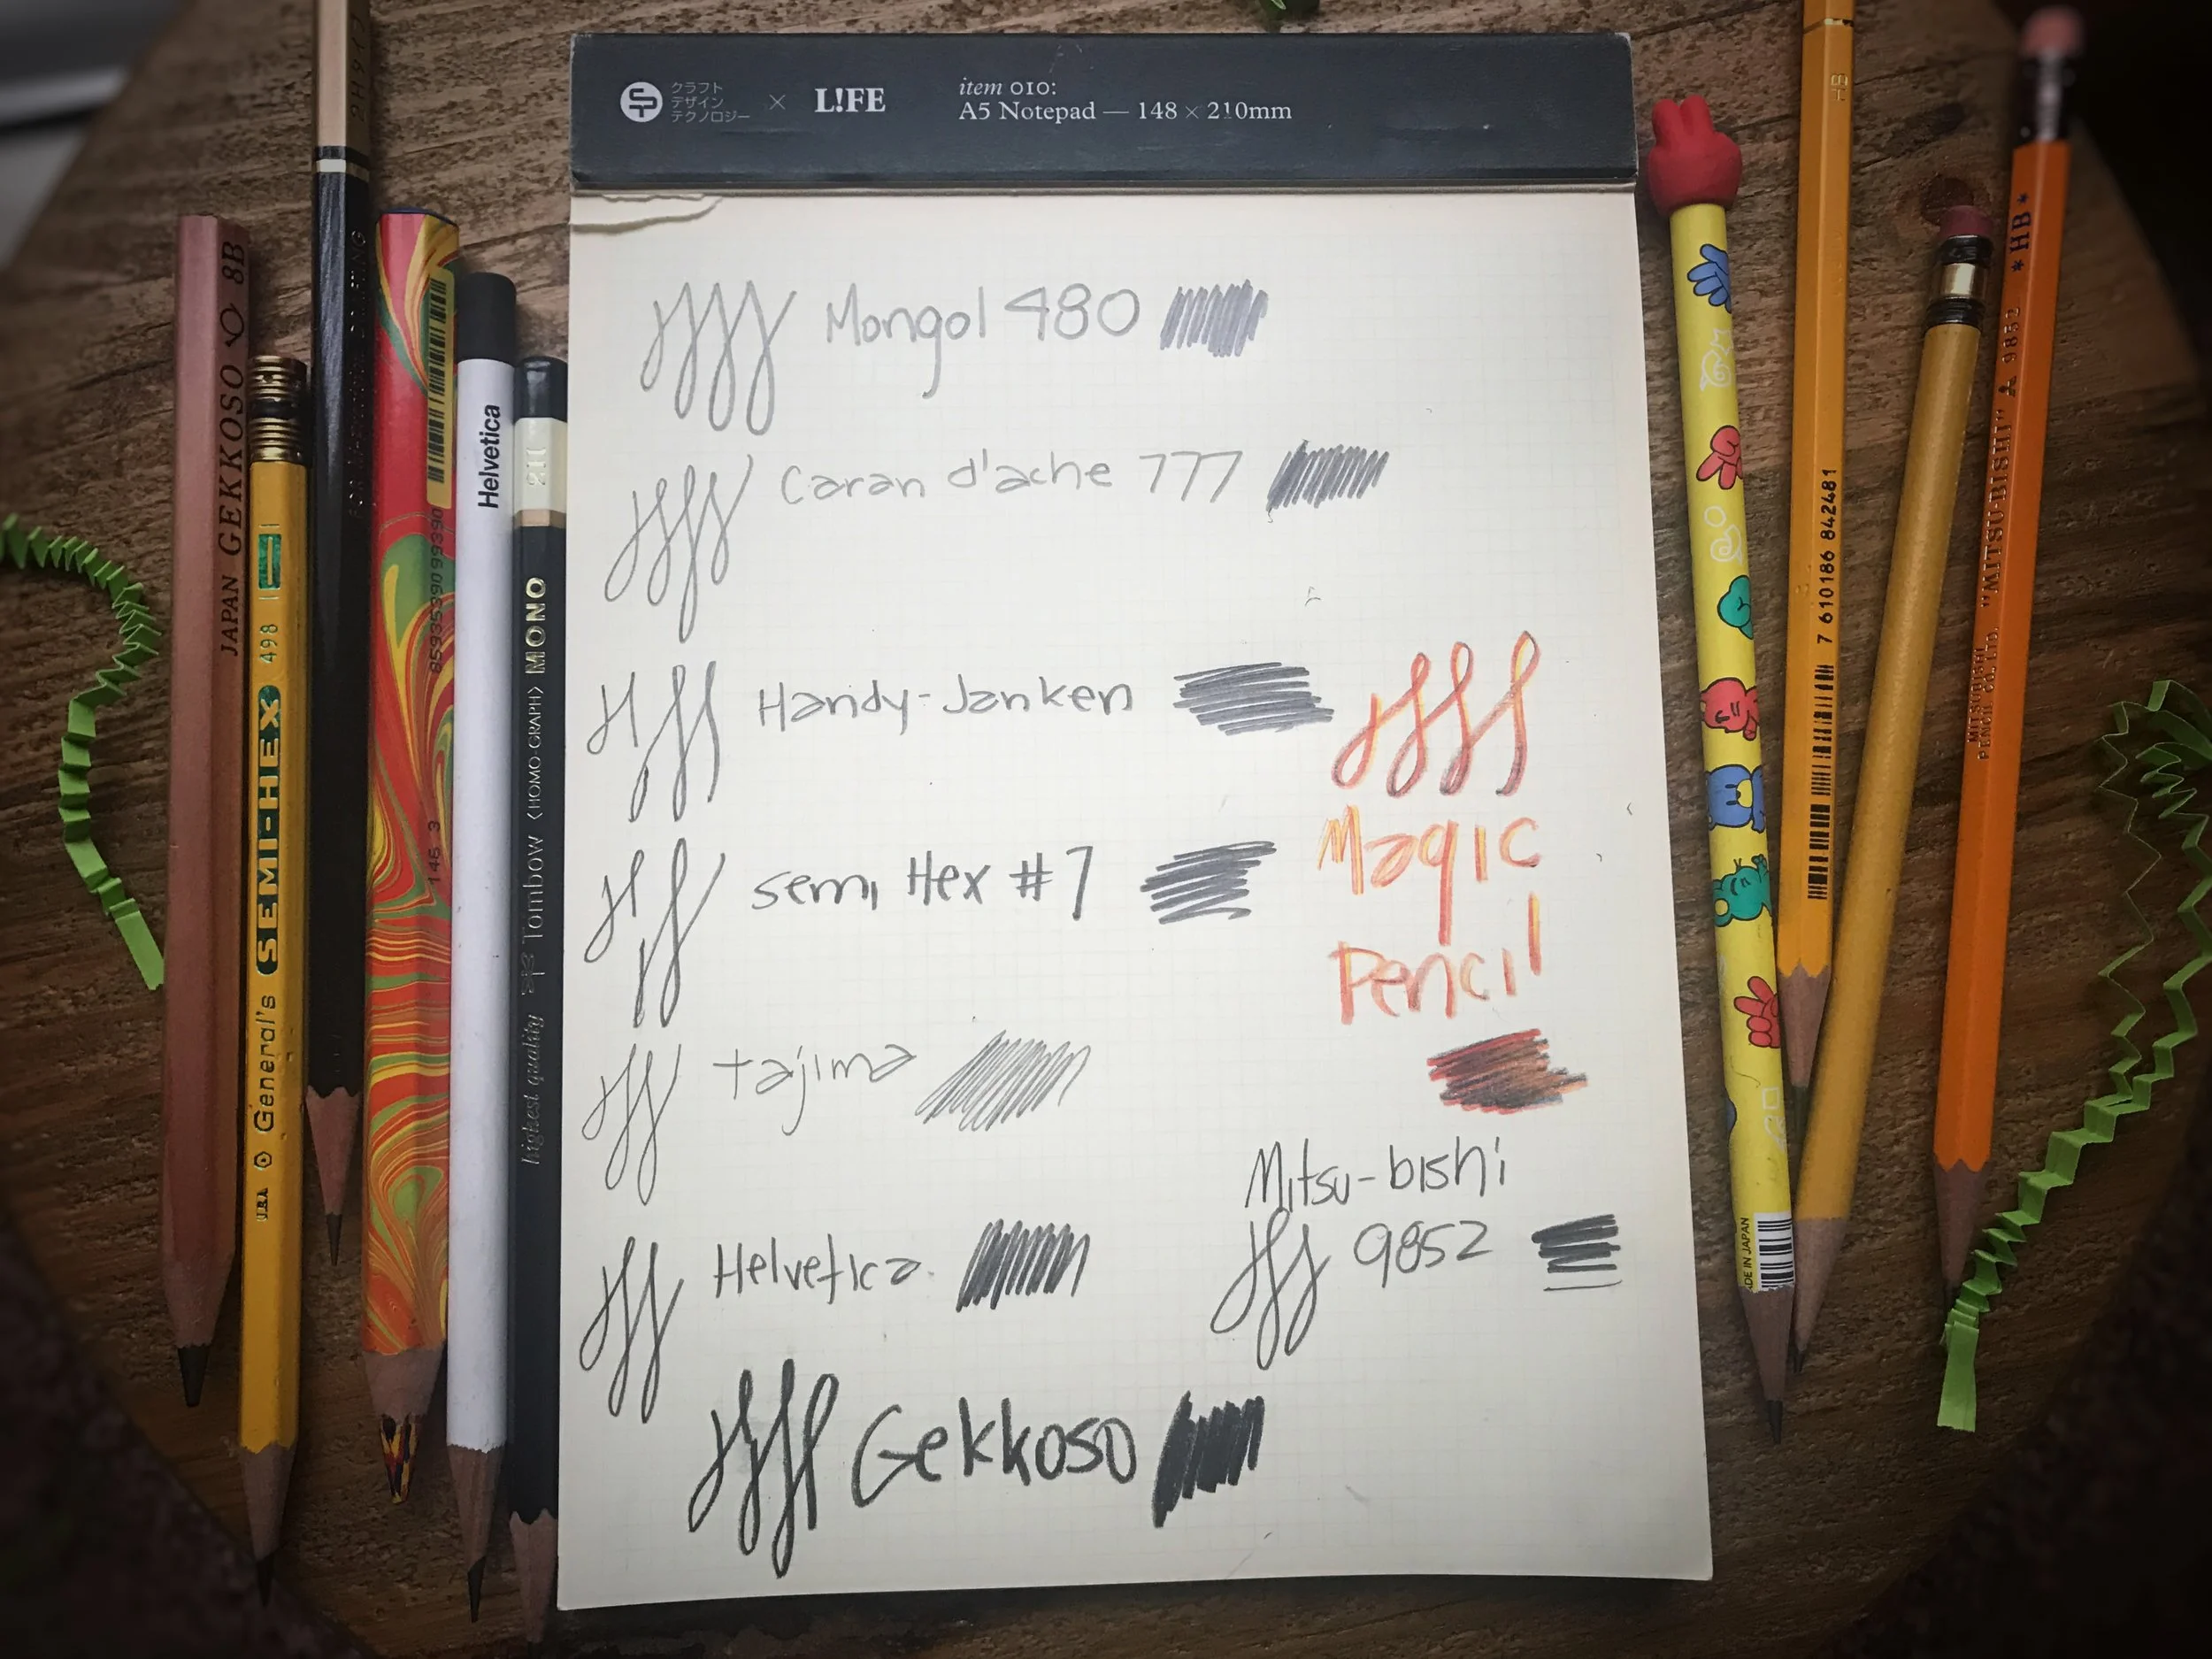 クラフト
デザイン
テクノロジー
×
L!FE
item 010:
A5 Notepad — 148 × 210mm
Mongol 480
Caran d'ache 777
Handy-Janken
Semi Hex #7
Tajima
Helvetica
Gekkoso
Magic
Pencil
Mitsu-bishi
9852
JAPAN GEKKOSO 8B
U.S.A. General's SEMI-HEX 498
Helvetica
highest quality Tombow (HOMO-GRAPH) MONO
MADE IN JAPAN
HB
7 610186 842481
MITSUBISHI
PENCIL CO. LTD. "MITSU-BISHI" 9852 *HB*